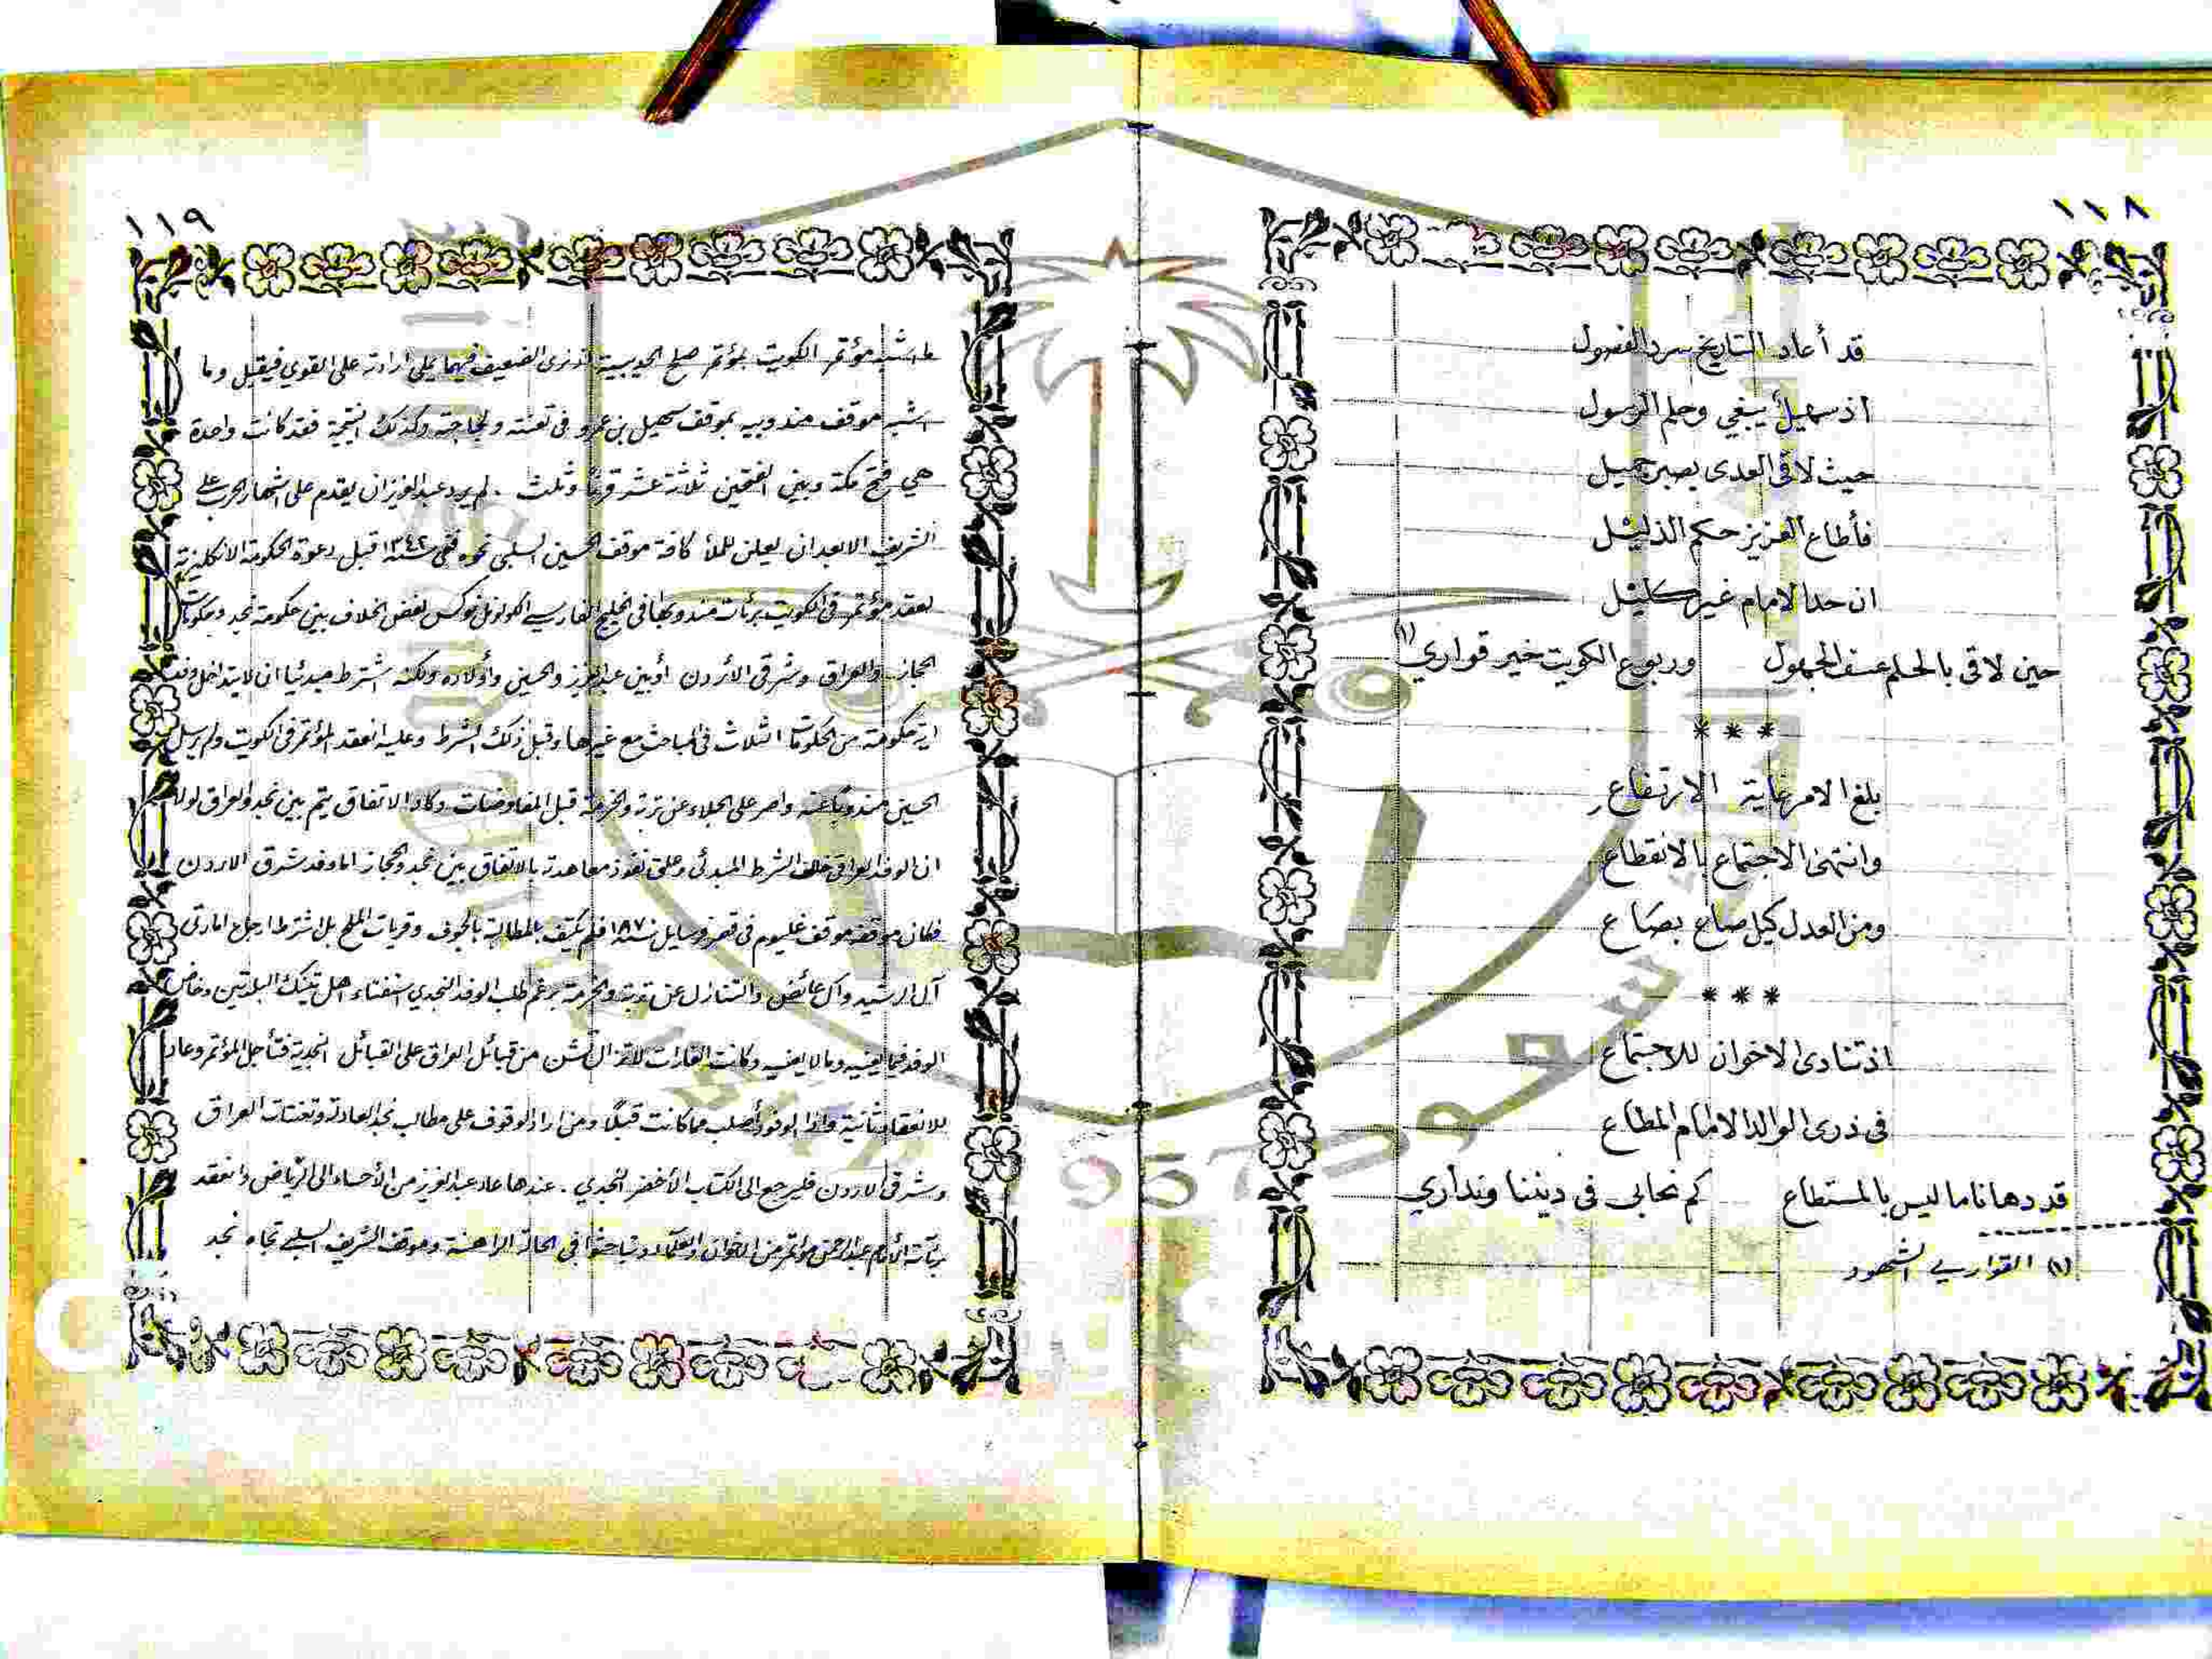 ١١٨
قد أعاد التاريخ سرد الفصول
اذ سهيل يبغي وحلم الرسول
حيث لاقى العدى بصبر جميل
فأطاع العزيز حكم الذليل
ان حدا الامام غير كليل
حين لاقى بالحلم عسف الجهول وربوع الكويت خير قواري (١)
* * *
بلغ الامر غاية الارتفاع
وانتهى الاجتماع بالانقطاع
ومن العدل كيل صاع بصاع
* * *
اذ تنادى الاخوان للاجتماع
في ذرى الوالد الامام المطاع
قد دهانا ما ليس بالمستطاع كم نحابى في ديننا ونداري
(١) القواري الشهود
١١٩
ما اشبه مؤتمر الكويت بمؤتمر صلح الحديبية اذ نرى الضعيف فيهما يملي ارادته على القوي فيقبل وما
اشبه موقف مندوبيه بموقف سهيل بن عمرو في تعنته ولجاجته وكذلك النتيجة فقد كانت واحدة
هي فتح مكة وبين الفتحين ثلاثة عشر قرنا وثلث . لم يرد عبدالعزيز ان يقدم على اشهار الحرب على
الشريف الا بعد ان يعلن للملأ كافة موقف الحسين السلبي نحوه ففي سنة ١٣٤٢ قبل دعوة الحكومة الانكليزية
لعقد مؤتمر في الكويت برئاسة مندوبها في الخليج الفارسي الكولونل نوكس لفض الخلاف بين حكومة نجد وحكومات
الحجاز والعراق وشرقي الأردن أو بين عبدالعزيز والحسين وأولاده ولكنه اشترط مبدئيا ان لا يتداخل وفد
اية حكومة من الحكومات الثلاث في المباحث مع غيرها وقبل ذلك الشرط وعليه انعقد المؤتمر في الكويت ولم يرسل
الحسين مندوبا عنه واصر على الجلاء عن تربة والخرمة قبل المفاوضات وكاد الاتفاق يتم بين نجد والعراق لولا
ان الوفد العراقي خالف الشرط المبدئي وعلق نفوذ معاهدته بالاتفاق بين نجد والحجاز اما وفد شرق الاردن
فكان موقفه موقف غليوم في قصر فرسايل سنة ١٨٧ فلم يكتف بالمطالبة بالجوف وقريات الملح بل اشترط ارجاع امارتي
آل الرشيد وآل عائض والتنازل عن تربة والخرمة برغم طلب الوفد النجدي استفتاء اهل تينك البلدتين وخاض
الوفد فيما يعنيه وما لا يعنيه وكانت الغارات لا تزال تشن من قبائل العراق على القبائل النجدية فتأجل المؤتمر وعاد
للانعقاد ثانية واذا الوفود أصلب مما كانت قبلا ومن اراد الوقوف على مطالب نجد العادلة وتعنتات العراق
وشرقي الاردن فليرجع الى الكتاب الأخضر النجدي . عندها عاد عبدالعزيز من الأحساء الى الرياض وانعقد
برئاسة الأمام عبدالرحمن مؤتمر من الاخوان والعلماء وتباحثوا في الحالة الراهنة وموقف الشريف السلبي تجاه نجد